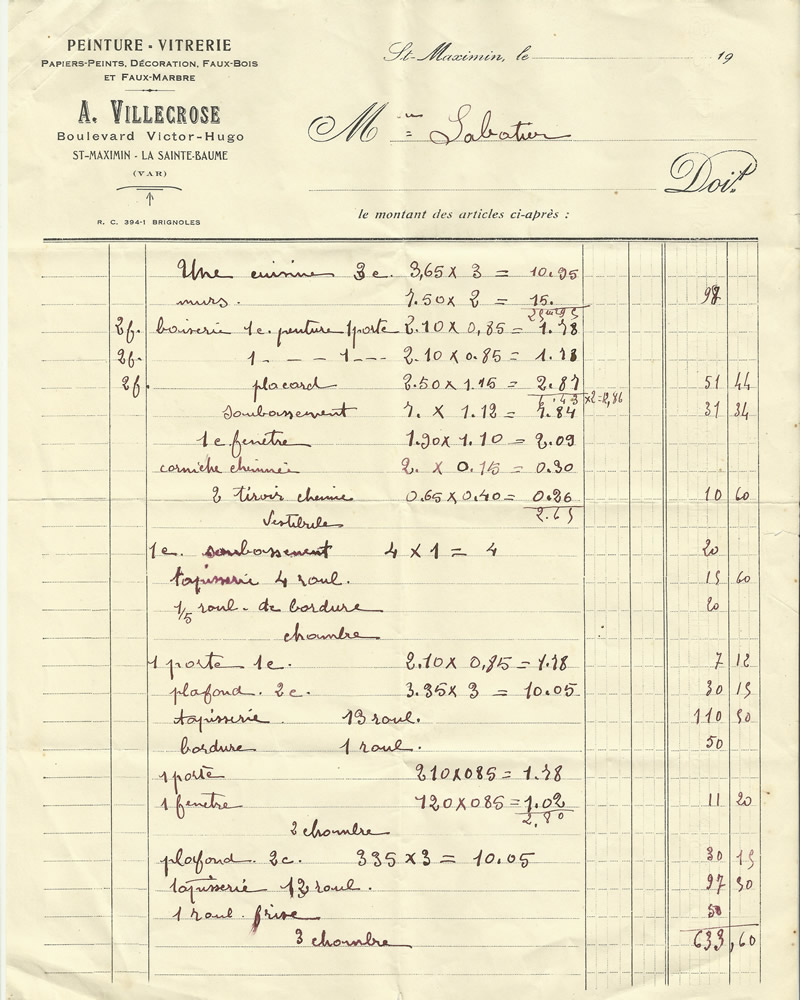 PEINTURE - VITRERIE
PAPIERS-PEINTS, DÉCORATION, FAUX-BOIS
ET FAUX-MARBRE
A. VILLECROSE
Boulevard Victor-Hugo
ST-MAXIMIN - LA SAINTE-BAUME
(VAR)
R. C. 394-1 BRIGNOLES
St-Maximin, le 19
Mme Sabatier
Doit
le montant des articles ci-après :
Une cuisine 3 c. 3,65 x 3 = 10.95
murs. 7.50 x 2 = 15. 98
25m95
2f. boiserie 1c. peinture 1 porte 2.10 x 0,85 = 1.78
2f. 1 - - - 1 - - - 2.10 x 0.85 = 1.78
2f. placard 2.50 x 1.15 = 2.87 51 44
6.43 x2=12,86
soubassement 7. x 1.12 = 7.84 31 34
1 c fenetre 1.90 x 1.10 = 2.09
corniche cheminée 2. x 0.15 = 0.30
2 tiroir chemine 0.65 x 0.40 = 0.26 10 60
2.65
Vestibule
1c. soubassement 4 x 1 = 4 20
tapisserie 4 roul. 15 60
1/5 roul - de bordure 20
chambre
1 porte 1c. 2.10 x 0,85 = 1.78 7 12
plafond. 2c. 3.35 x 3 = 10.05 30 15
tapisserie. 13 roul. 110 50
bordure 1 roul. 50
1 porte 210 x 085 = 1.78
1 fenetre 120 x 085 = 1.02 11 20
2,80
2 chambre
plafond. 2c. 335 x 3 = 10.05 30 15
tapisserie 13 roul. 97 50
1 roul. frise 50
3 chambre 633,60